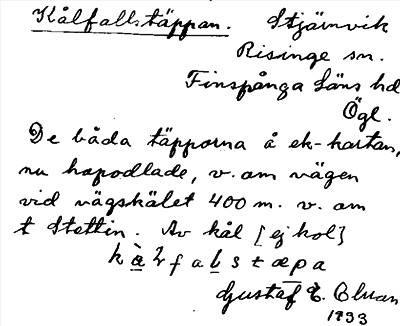 Kålfallstäppan. Stjärnvik
Risinge sn.
Finspånga läns hd
Ögl.
De båda täpporna å ek-kartan,
nu hopodlade, v. om vägen
vid vägskälet 400 m. v. om
t Stettin. Av kål [ej kol]
Gustaf E.
1933